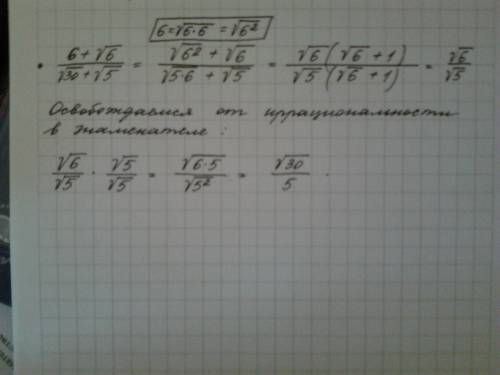 6=√6·6 = √6²
• (6+√6)/(√30+√5) = (√6² + √6)/(√5·6 + √5) = (√6(√6 + 1))/(√5(√6 + 1)) = √6/√5
Освобождаемся от иррациональности
в знаменателе:
√6/√5 · √5/√5 = √6·5/√5² = √30/5 .